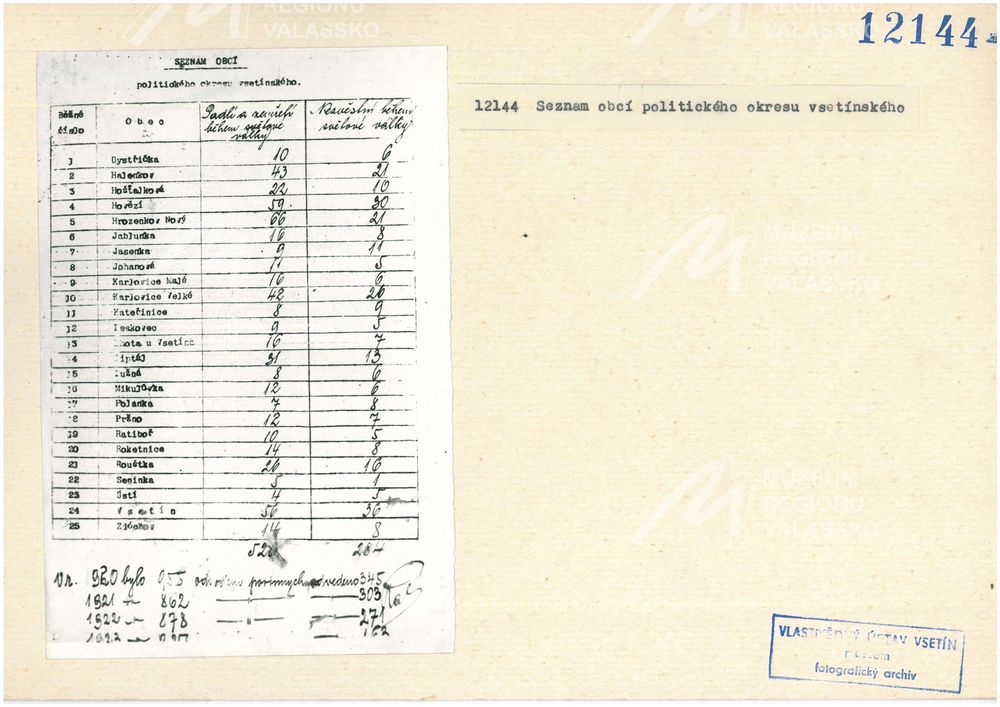 12144
SEZNAM OBCÍ
politického okresu vsetínského.
Běžné číslo Obec Padlí a zemřelí během světové války Nezvěstní během světové války
1 Bystřička 10 6
2 Halenkov 43 21
3 Hošťalková 22 10
4 Hovězí 59 30
5 Hrozenkov Nový 66 21
6 Jablunka 16 8
7 Jasenka 9 11
8 Johanová 11 5
9 Karlovice Malé 16 6
10 Karlovice Velké 42 26
11 Kateřinice 8 9
12 Leskovec 9 5
13 Lhota u Vsetína 16 7
14 Liptál 31 13
15 Lužná 8 6
16 Mikulůvka 12 6
17 Polanka 7 8
18 Pržno 12 7
19 Ratiboř 10 5
20 Roketnice 14 8
21 Rouštka 26 16
22 Seninka 5 1
23 Ústí 4 5
24 Vsetín 56 36
25 Zděchov 14 8
284
V r. 920 bylo 955 odvodem povinných odvedeno 345
1921 " 862 " 303
1922 " 878 " 271
12144 Seznam obcí politického okresu vsetínského
MUZEUM
REGIONU
VALAŠSKO
VLASTIVĚDNÝ ÚSTAV VSETÍN
muzeum
fotografický archiv